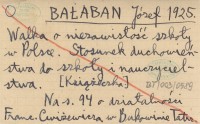 BAŁABAN Józef 1925.
Walka o niezawisłość szkoły
w Polsce. Stosunek duchowień-
stwa do szkoły i nauczyciel-
stwa. [Książeczka]
Na s. 94 o działalności
Franc. Ćwiżewicza w Bukowinie Tatrz.